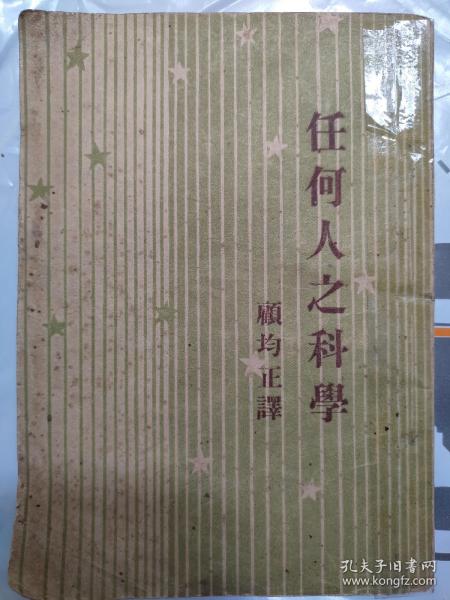 任何人之科學
顧均正譯
孔夫子旧书网
www.kongfz.com